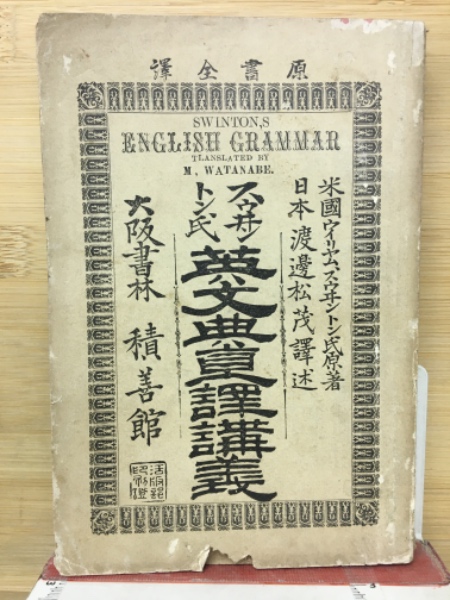 原書全譯
SWINTON,S
ENGLISH GRAMMAR
TLANSLATED BY
M, WATANABE.
米國ウイリヤム、スウヰントン氏原著
日本渡邊松茂譯述
スウヰントン氏
英文典獨案譯講義
大阪書林 積善館